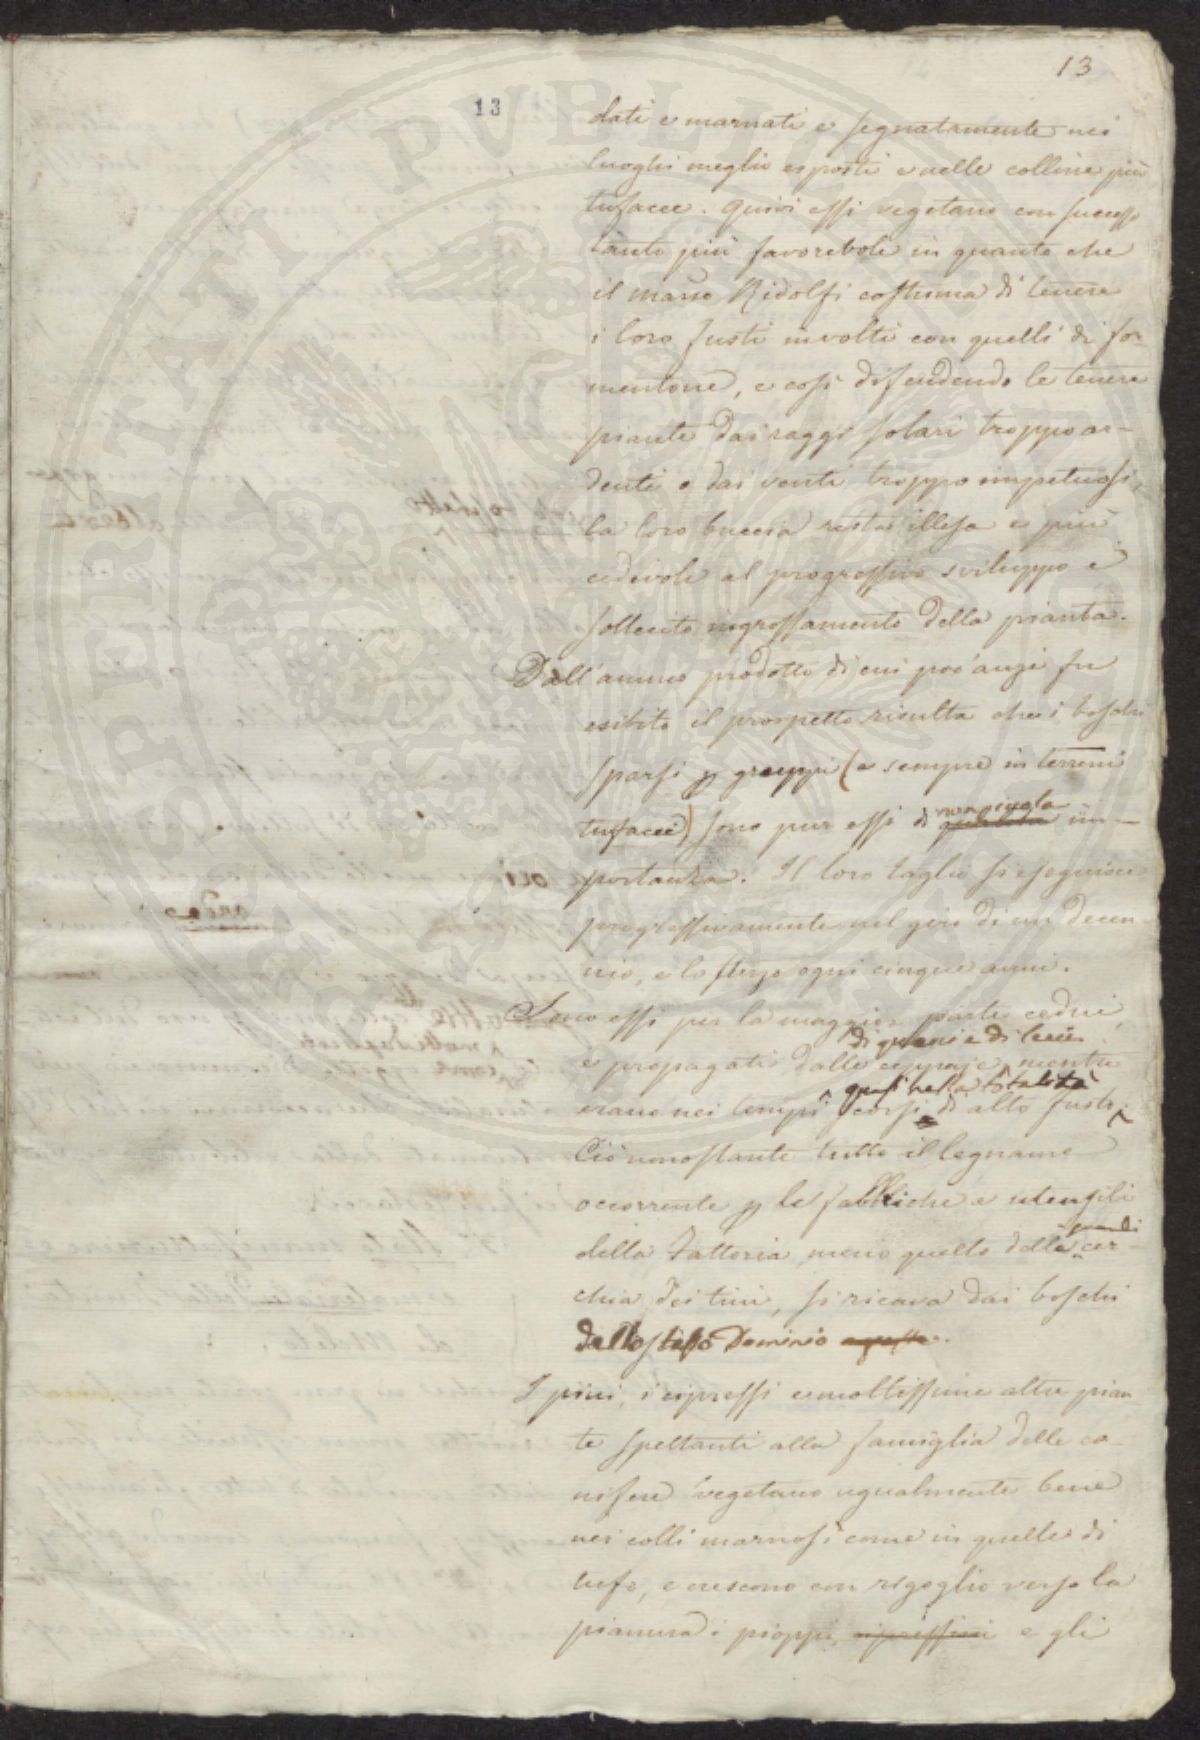 13
13
dati e marnati e segnatamente nei
luoghi meglio esposti e nelle colline più
tufacee. Quivi essi vegetano con successo
tanto più favorebole in quanto che
il March.e Ridolfi costuma di tenere
i loro fusti involti con quelli di for-
mentone, e così difendendo le tenere
piante dai raggi solari troppo ar-
denti e dai venti troppo impetuosi,
la loro buccia resta illesa e più
cedevole al progressivo sviluppo e
sollecito ingrossamento della pianta.
Dall'annuo prodotto di cui poc'anzi fu
esibito il prospetto risulta che i boschi
sparsi p gruppi (e sempre in terreni
tufacei) sono pur essi di non piccola im-
portanza. Il loro taglio si eseguisce
progressivamente nel giro di un decen-
nio, e lo sterzo ogni cinque anni.
Sono essi per la maggior parte cedui,
di querci e di lecci
e propagati dalle ceppaje, mentre
quasi nella totalità
erano nei tempi scorsi di alto fusto.
Ciò nonostante tutto il legname
occorrente p le fabbriche e utensili
della Fattoria, meno quello delle grandi cer-
chia dei tini, si ricava dai boschi
dello stesso Dominio.
I pini, i cipressi e moltissime altre pian-
te spettanti alla famiglia delle co-
nifere vegetano ugualmente bene
nei colli marnosi come in quelle di
tufo, e crescono con rigoglio verso la
pianura i pioppi, cipressini e gli